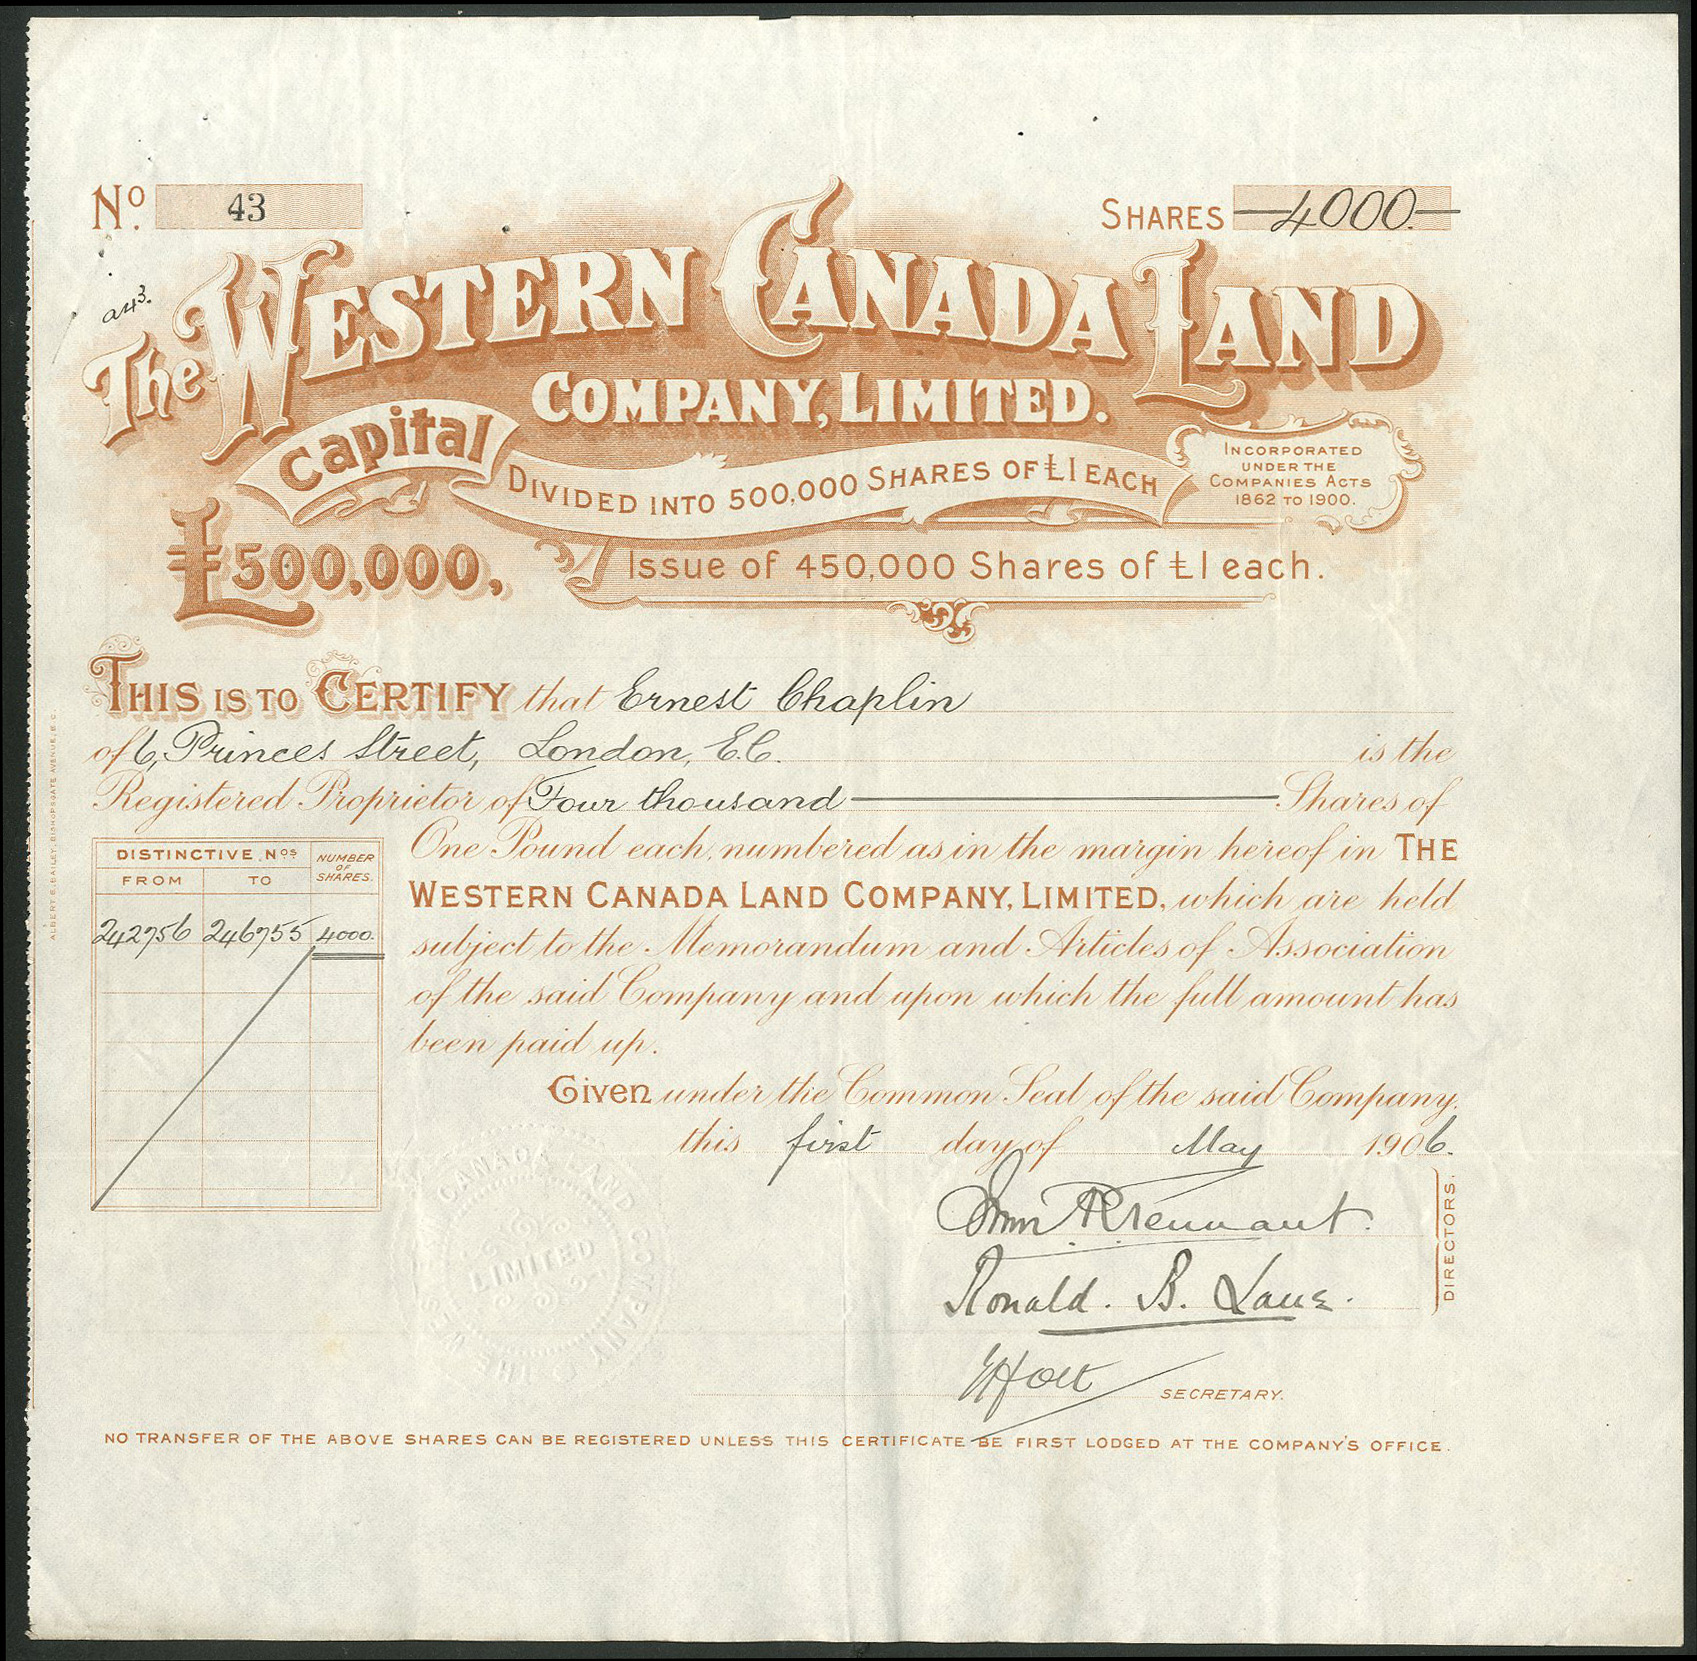 No. 43
SHARES 4000.
a43.
The WESTERN CANADA LAND
COMPANY, LIMITED.
Capital
DIVIDED INTO 500,000 SHARES OF £1 EACH
INCORPORATED
UNDER THE
COMPANIES ACTS
1862 TO 1900.
£500,000,
Issue of 450,000 Shares of £1 each.
THIS IS TO CERTIFY that Ernest Chaplin
of 6, Princes Street, London, E.C. is the
Registered Proprietor of Four thousand Shares of
One Pound each, numbered as in the margin hereof in THE
WESTERN CANADA LAND COMPANY, LIMITED, which are held
subject to the Memorandum and Articles of Association
of the said Company and upon which the full amount has
been paid up.
DISTINCTIVE NOS NUMBER OF SHARES.
FROM TO
242756 246755 4000.
Given under the Common Seal of the said Company,
this first day of May 1906.
Tennant.
Ronald. B. Lane.
DIRECTORS.
Holt
SECRETARY.
THE WESTERN CANADA LAND COMPANY
LIMITED
NO TRANSFER OF THE ABOVE SHARES CAN BE REGISTERED UNLESS THIS CERTIFICATE BE FIRST LODGED AT THE COMPANY'S OFFICE.
ALBERT E. BAILEY, BISHOPSGATE AVENUE, E.C.